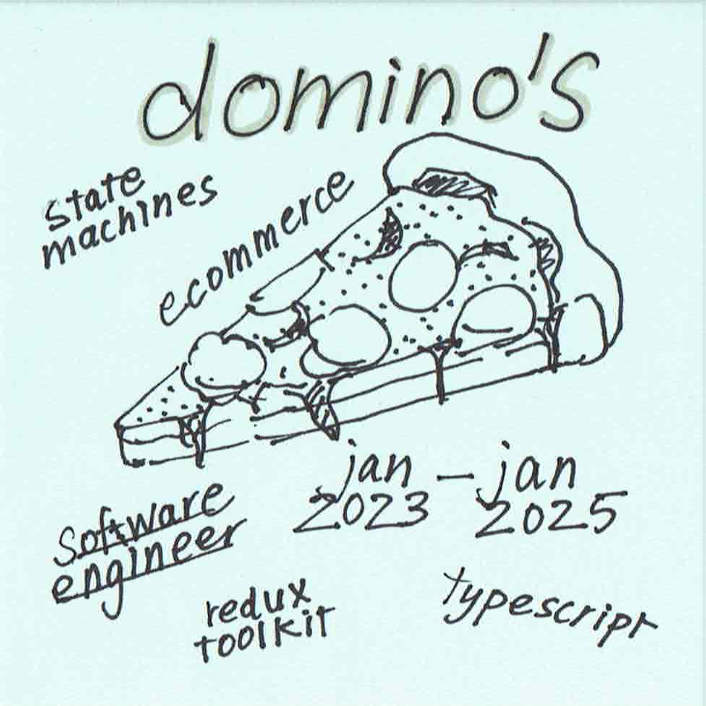 domino's
state
machines
ecommerce
jan – jan
2023 2025
software
engineer
redux
toolkit
typescript